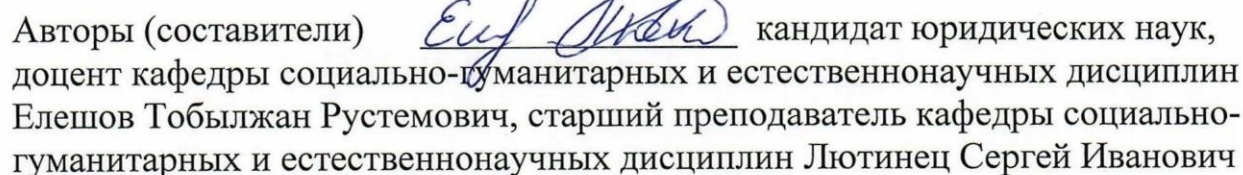 Авторы (составители) кандидат юридических наук,
доцент кафедры социально-гуманитарных и естественнонаучных дисциплин
Елешов Тобылжан Рустемович, старший преподаватель кафедры социально-
гуманитарных и естественнонаучных дисциплин Лютинец Сергей Иванович